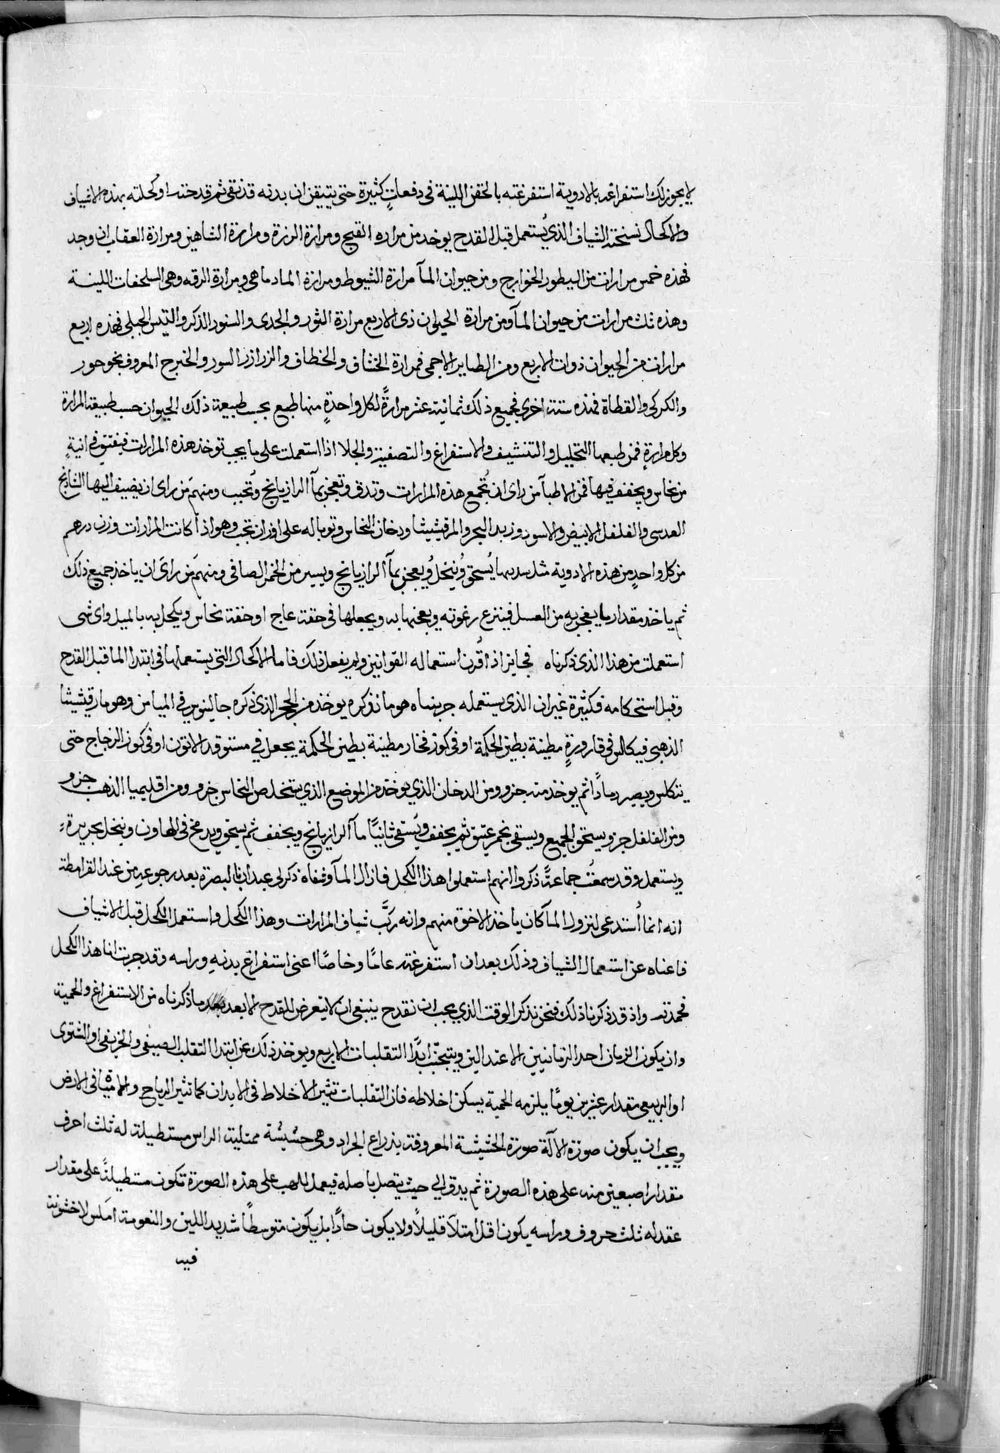 لا يجوز لك استفراغه بالادوية استفرغته بالحقن اللينة في دفعات كثيرة حتى يتيقن ان بدنه قد نقي ثم قدحته او كحلته بهذه الاشياف
والاكحال نسخة الشياف الذي يستعمل قبل القدح يوخذ من مراره القبج ومرارة الرزة ومرارة الشاهين ومرارة العقاب ان وجد
فهذه خمس مرارات من الطيور الجوارح ومن حيوان المآ مرارة الشبوط ومرارة الماد ماهي ومرارة الرقه وهي السلحفات اللينة
وهذه ثلث مرارات من حيوان المآ ومن مرارة الحيوان ذي الاربع مرارة الثور والجدي والسنور الذكر والتيس الجبلي فهذه اربع
مرارات من الحيوان ذوات الاربع ومن الطاير الاجمي فمرارة الخشاف والخطاف والزرازر السود والخبرج المعروف بخوحور
والكركي والقطاة فهذه ستة اخرى فجميع ذلك ثمانية عشر مرارةً لكل واحدةٍ منها طبع بحسب طبيعة ذلك الحيوان حسب طبيعة المرارة
وكل مرارةٍ فمن طبعها التحليل والتنشيف والاستفراغ والتصفية والجلا اذا استعملت على ما يجب توخذ هذه المرارات فيفتق في انيةٍ
من نحاس ويجفف فيها فمن الاطبآ من راى ان تُجمع هذه المرارات وتدق وتعجن بمآ الرازيانج وتُحبب ومنهم من راى ان يضيف اليها النانخ
العدسي والفلفل الابيض والاسود وزبد البحر والمرقشيثا ودخان النحاس وتوباله على اوزان تجب وهو اذا كانت المرارات وزن درهم
من كل واحدٍ من هذه الادوية مثل سدسها يُسحق ويُنخل ويُعجن بمآ الرازيانج ويسير من الخل الصافي ومنهم من راى ان ياخذ جميع ذلك
ثم ياخذ مقدار ما يعجن به من العسل فينزع رغوته ويعجنها به ويجعلها في حقة عاج او حقة نحاس ويكحل به بالميل واى شى
استعملت من هذا الذى ذكرناه فجايز اذا قُرن استعماله القوانين ولم يفعل ذلك فاما الاكحال التي يستعملها في ابتدا الما قبل القدح
وقبل استحكامه فكثيرة غير ان الذى يستعمله جربناه هو ما نذكره يوخذ من الحجر الذى ذكره جالينوس في الميامر وهو مارقشيثا
الذهبي فيكلس في قارورةٍ مطينة بطين الحكمة او في كوز فخار مطينة بطين الحكمة يجعل في مستوقد الاتون او في كوز الزجاج حتى
يتكلس ويصير رمادًا ثم يوخذ منه جزو ومن الدخان الذي يوخذ من الموضع الذي يستخلص النحاس جزو ومن اقليميا الذهب جزو
ومن الفلفل جزو يسحق الجميع ويسقى بخمر عتيق ثم يجفف ويُسقى ثانيًا مآ الرازيانج ويجفف ثم يسحق ويدعك في الهاون وينخل بحريرةٍ
ويستعمل وقد سمعت جماعةً ذكروا انهم استعملوا هذا الكحل فازال المآ وعفاه ذكر لي عبدان بالبصرة بعد رجوعه من عند القرامطة
انه انما استدعى لنزول المآ كان ياخذ الاخوة منهم وانه ركّب شياف المرارات وهذا الكحل واستعمل الكحل قبل الاشياف
فاغناه عن استعمال الشياف وذلك بعد ان استفرغته عامًا وخاصًا اعنى استفراغ بدنه وراسه وقد جربت انا هذا الكحل
فحمدته واذ قد ذكرنا ذلك فنحن نذكر الوقت الذي يجب ان نقدح ينبغي ان لا يعرض للقدح الا بعد ما ذكرناه من الاستفراغ والحمية
وان يكون الزمان احد الزمانيين الاعتدالين ويتجنب ابدًا التقلبات الاربع ويوخذ ذلك عن ابتدا التقلب الصيفي والخريفي او الشتوى
او الربيعي مقدار عشرين يومًا يلزمه الحمية يسكن اخلاطه فان التقلبات تثير الاخلاط في الابدان كما تثير الرياح والامياه في الارض
ويجب ان يكون صورة الالة صورة الحشيشة المعروفة بذراع الجراد وهي حشيشة ممتلية الراس مستطيلة له ثلث احرف
مقدار اصبعين منه على هذه الصورة ثم يدق الى حيث يتصل باصله فيعمل المهت على هذه الصورة تكون مستطيلةً على مقدار
عقد له ثلث حروف وراسه يكون اقل امتلاً قليلًا ولا يكون حادًا بل يكون متوسطًا شديد اللين والنعومة املس لا خشونة
فيه